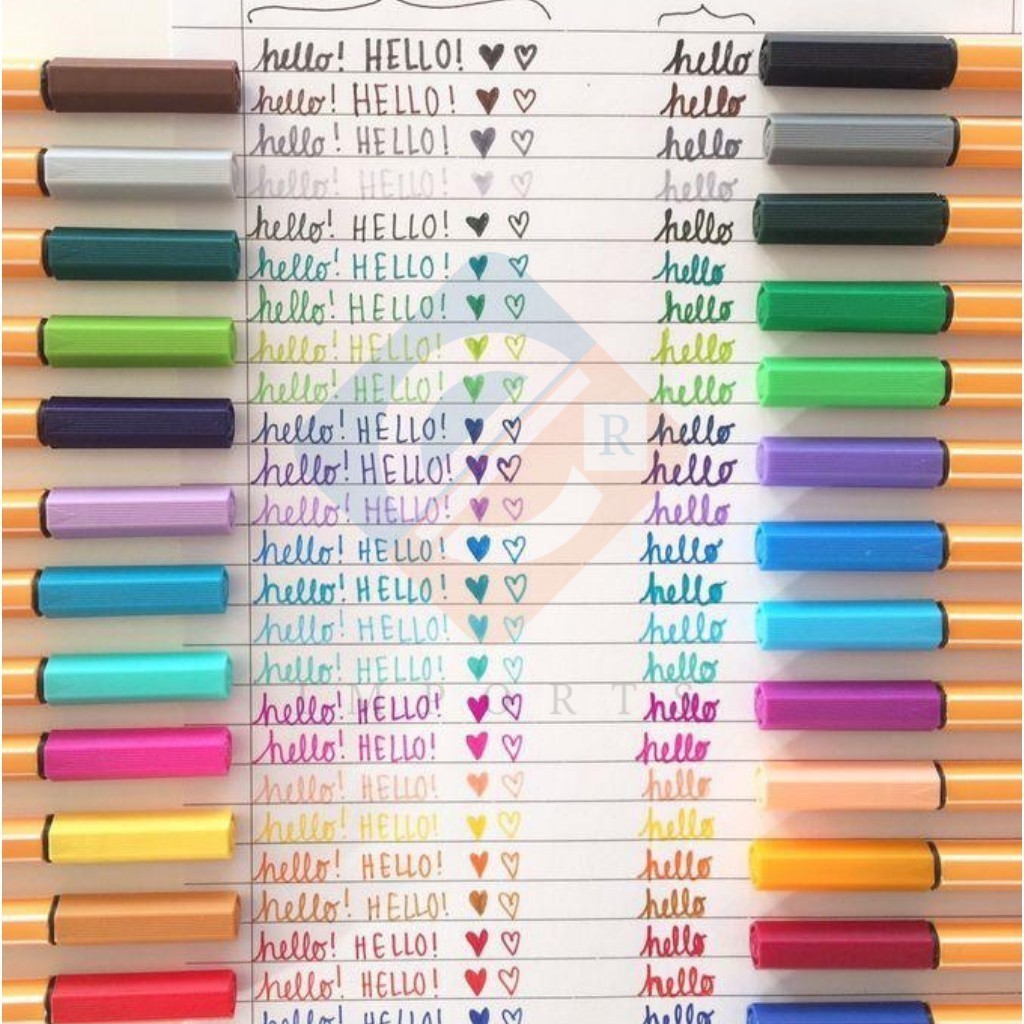 hello! HELLO! hello
hello! HELLO! hello
hello! HELLO! hello
hello! HELLO! hello
hello! HELLO! hello
hello! HELLO! hello
hello! HELLO! hello
hello! HELLO! hello
hello! HELLO! hello
hello! HELLO! hello
R
hello! HELLO! hello
hello! HELLO! hello
hello! HELLO! hello
hello! HELLO! hello
hello! HELLO! hello
hello! HELLO! hello
IMPORTS
hello! HELLO! hello
hello! HELLO! hello
hello! HELLO! hello
hello! HELLO! hello
hello! HELLO! hello
hello! HELLO! hello
hello! HELLO! hello
hello! HELLO! hello
hello! HELLO! hello